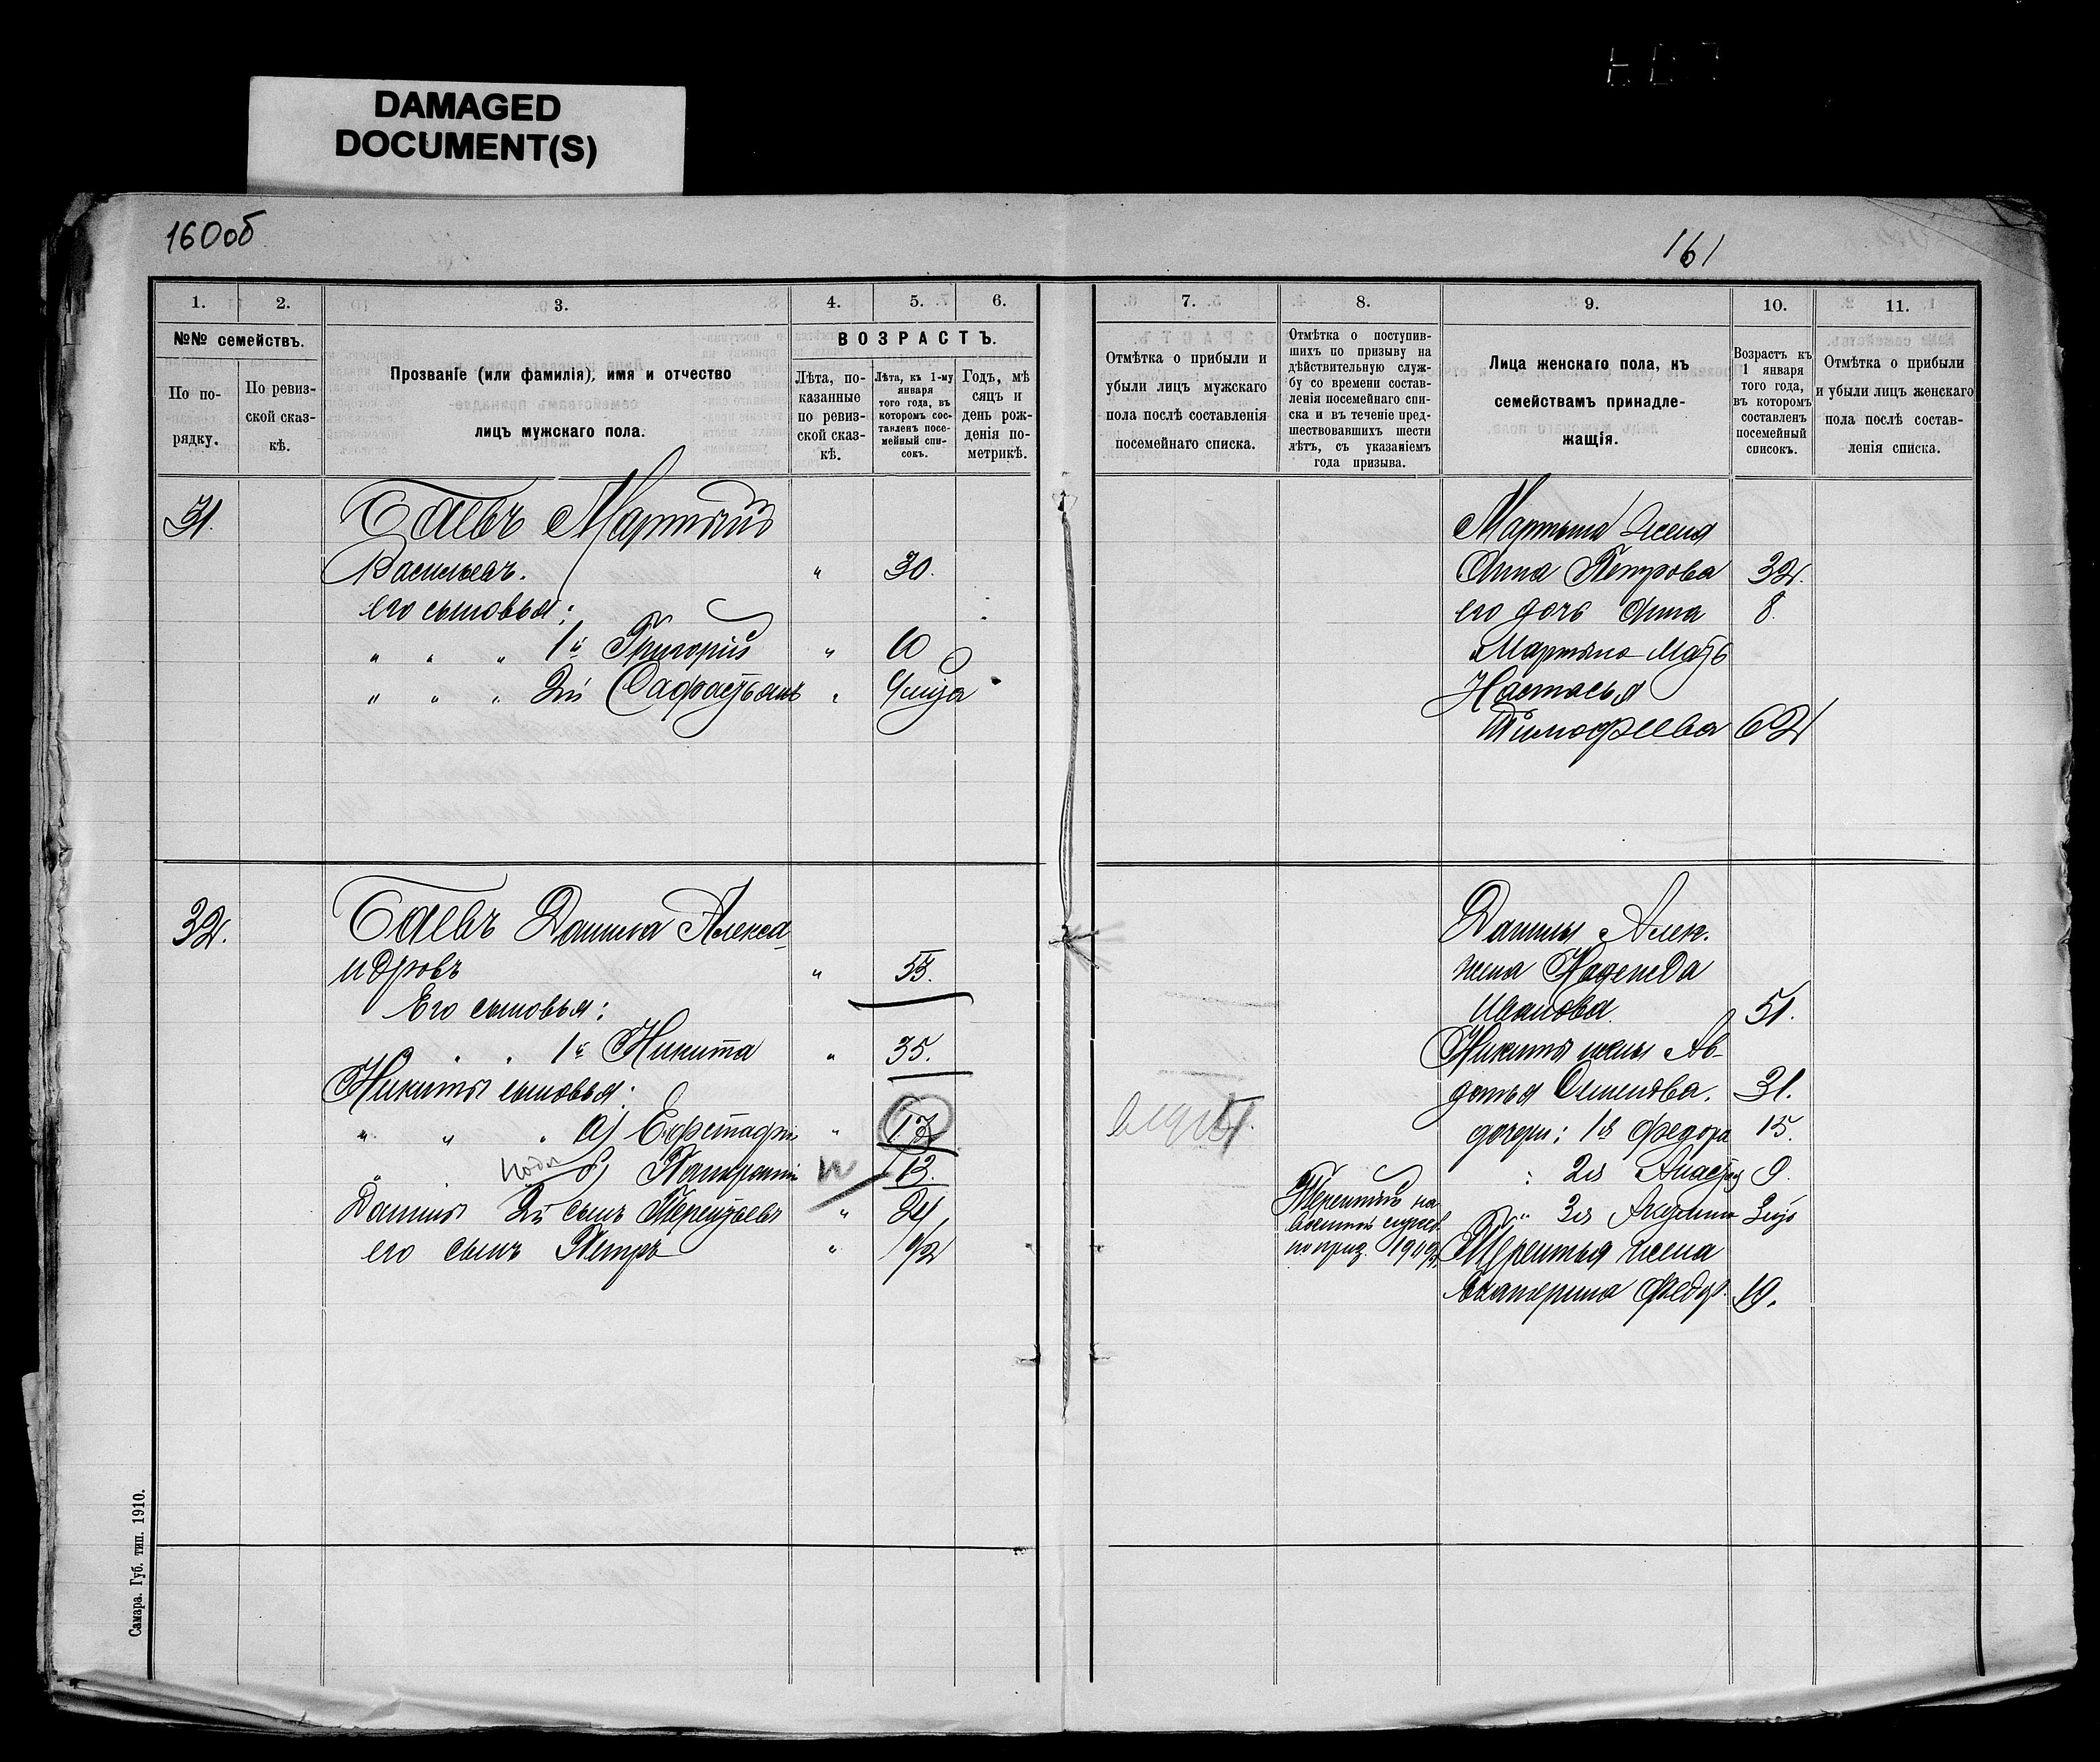 DAMAGED
DOCUMENT(S)
160об
161
1.
2.
3.
4.
5.
6.
№№ семействъ.
По по-
рядку.
По ревиз-
ской сказ-
кѣ.
Прозваніе (или фамилія), имя и отчество
лицъ мужскаго пола.
ВОЗРАСТЪ.
Лѣта, по-
казанные
по ревиз-
ской сказ-
кѣ.
Лѣта, къ 1-му
января
того года, въ
которомъ сос-
тавленъ посе-
мейный спи-
сокъ.
Годъ, мѣ
сяцъ и
день рож-
денія по-
метрикѣ.
31.
Баевъ Мартынъ
Васильевъ. " 30.
его сыновья:
" " " 1й Григорій " 10
" " " 2й "
32.
Баевъ Данила Алекса
ндровъ " 53.
Его сыновья:
" " 1й Никита " 35.
Никиты сыновья:
" " " а) Евстафій " 17
" б) Панкратій 13.
Данилы 2й сынъ Терентьевъ " 24
его сынъ Петръ " 1/2
Самара. Губ. тип. 1910.
7.
8.
9.
10.
11.
Отмѣтка о прибыли и
убыли лицъ мужскаго
пола послѣ составленія
посемейнаго списка.
Отмѣтка о поступив-
шихъ по призыву на
дѣйствительную служ-
бу со времени состав-
ленія посемейнаго спи-
ска и въ теченіе пред-
шествовавшихъ шести
лѣтъ, съ указаніемъ
года призыва.
Лица женскаго пола, къ
семействамъ принадле-
жащія.
Возрастъ къ
1 января
того года,
въ которомъ
составленъ
посемейный
списокъ.
Отмѣтка о прибыли
и убыли лицъ женскаго
пола послѣ состав-
ленія списка.
Мартына жена
Анна Петрова 32.
его дочь Анна 8.
Мартына мать
Настасья
Тимофеева 62
Данилы Алек.
жена Надежда
Иванова 51.
Никиты жена Ав-
дотья 31.
дочери: 1я Федора 15.
" 2я 9.
" 3я
Терентій на
военной служб.
по приз. 1909г.
Терентья жена
Екатерина Федор. 19.